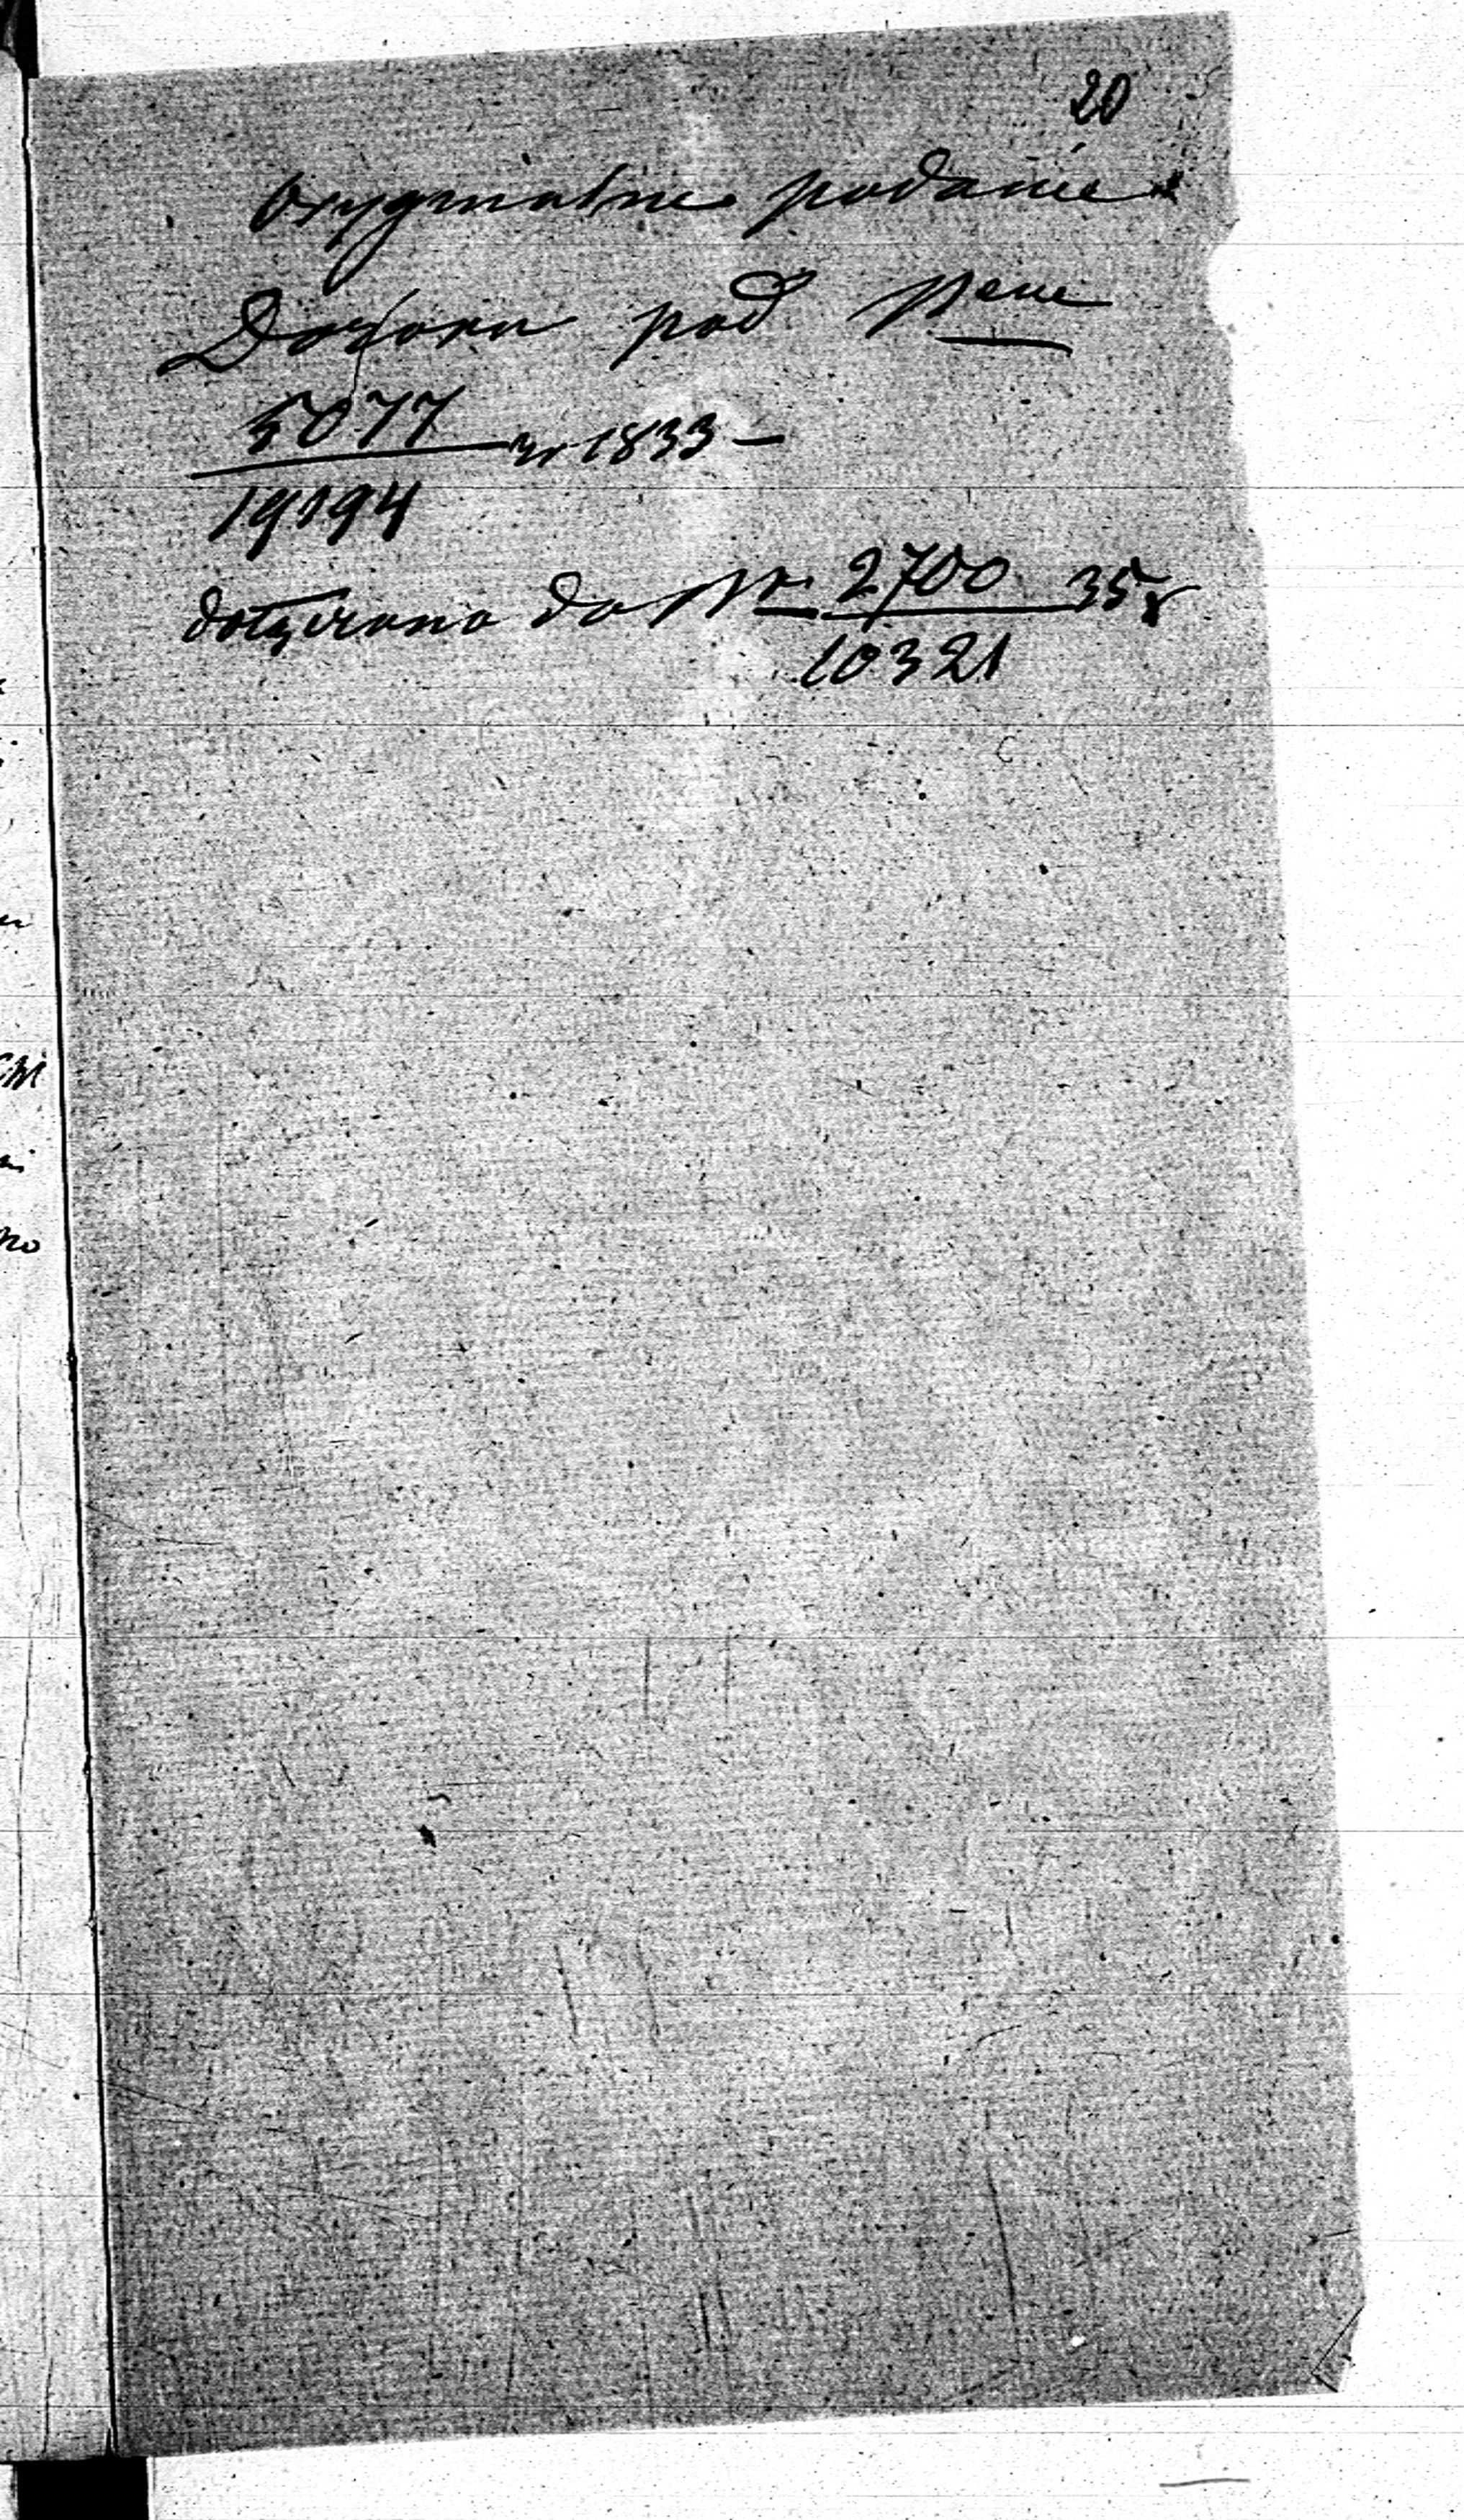 20
Oryginalne podanie
Dozoru pod Nrem
5077 / 19194 z r 1833 –
dołączono do Nr 2700 / 10321 35 r